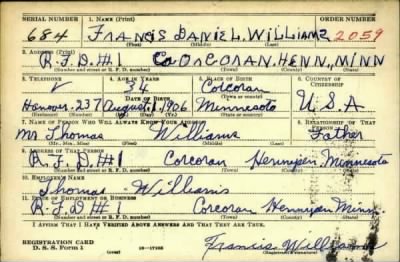 SERIAL NUMBER 1. NAME (Print) ORDER NUMBER
684 FRANCIS DANIEL WILLIAMS 2059
(First) (Middle) (Last)
2. ADDRESS (Print)
R.F.D.#1 CORCORAN, HENN, MINN
(Number and street or R. F. D. number) (Town) (County) (State)
3. TELEPHONE 4. AGE IN YEARS 5. PLACE OF BIRTH 6. COUNTRY OF CITIZENSHIP
34 Corcoran
DATE OF BIRTH (Town or county)
Hanover-237 August 1 1906 Minnesota U.S.A
(Exchange) (Number) (Mo.) (Day) (Yr.) (State or country)
7. NAME OF PERSON WHO WILL ALWAYS KNOW YOUR ADDRESS 8. RELATIONSHIP OF THAT PERSON
Mr Thomas Williams Father
(Mr., Mrs., Miss) (First) (Middle) (Last)
9. ADDRESS OF THAT PERSON
R.F.D.#1 Corcoran Hennepen Minnesota
(Number and street or R. F. D. number) (Town) (County) (State)
10. EMPLOYER'S NAME
Thomas Williams
11. PLACE OF EMPLOYMENT OR BUSINESS
R.F.D #1 Corcoran Hennepen Minn.
(Number and street or R. F. D. number) (Town) (County) (State)
I AFFIRM THAT I HAVE VERIFIED ABOVE ANSWERS AND THAT THEY ARE TRUE.
REGISTRATION CARD
D. S. S. Form 1 (over) Francis Williams